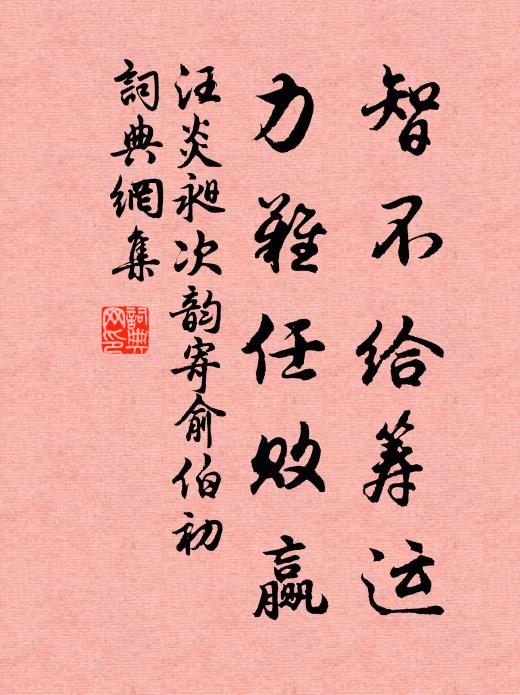 智不给筹运
力难任败赢
汪炎昶次韵寄俞伯初
词典網集
詞典网印